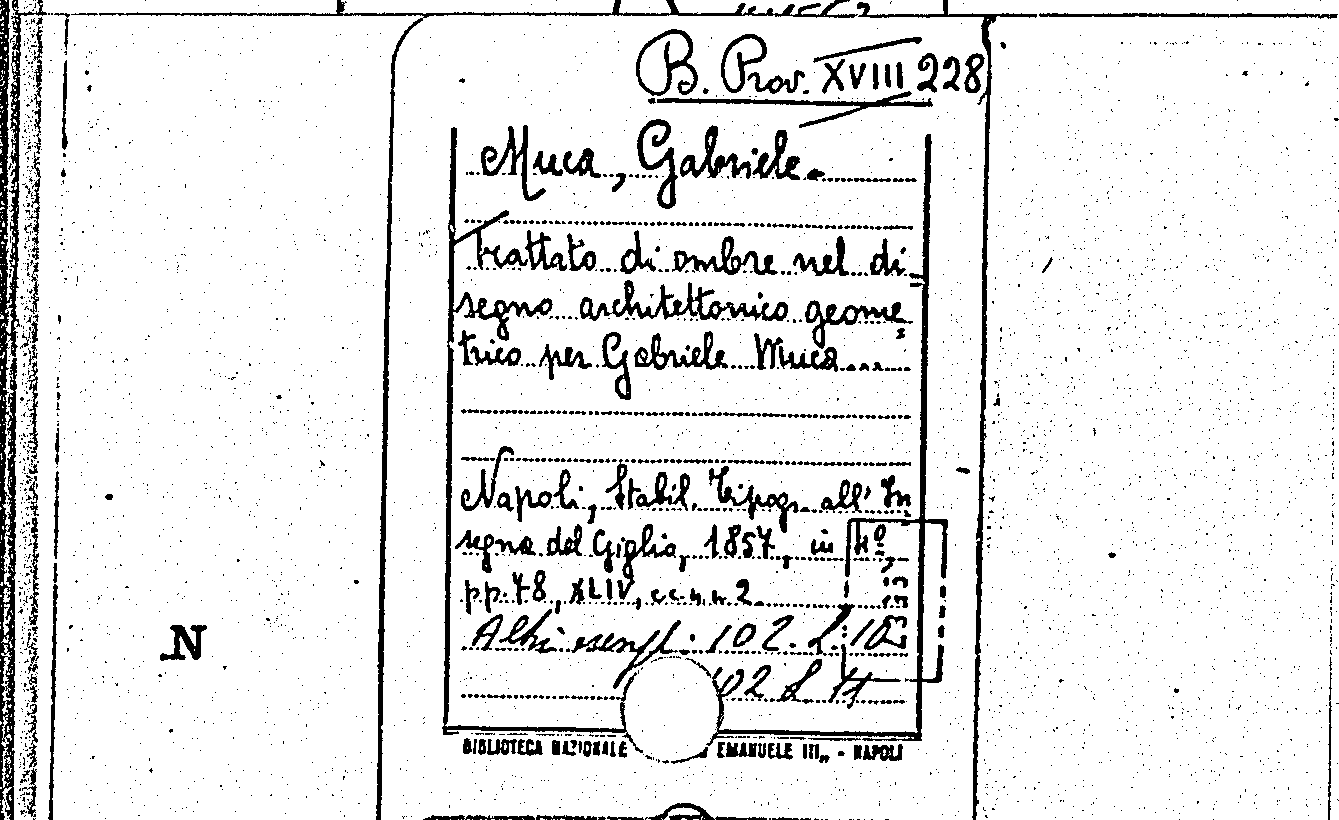 B. Prov. XVIII 228
Muca, Gabriele.
Trattato di ombre nel di=
segno architettonico geome=
trico per Gabriele Muca....
Napoli, Stabil. Tipogr. all' In
segna del Giglio, 1857, in 4º,
pp. 78, XLIV, cc. n. n. 2.
Altri esempl: 102. L. 10
102 L
N
BIBLIOTECA NAZIONALE EMANUELE III„ - NAPOLI